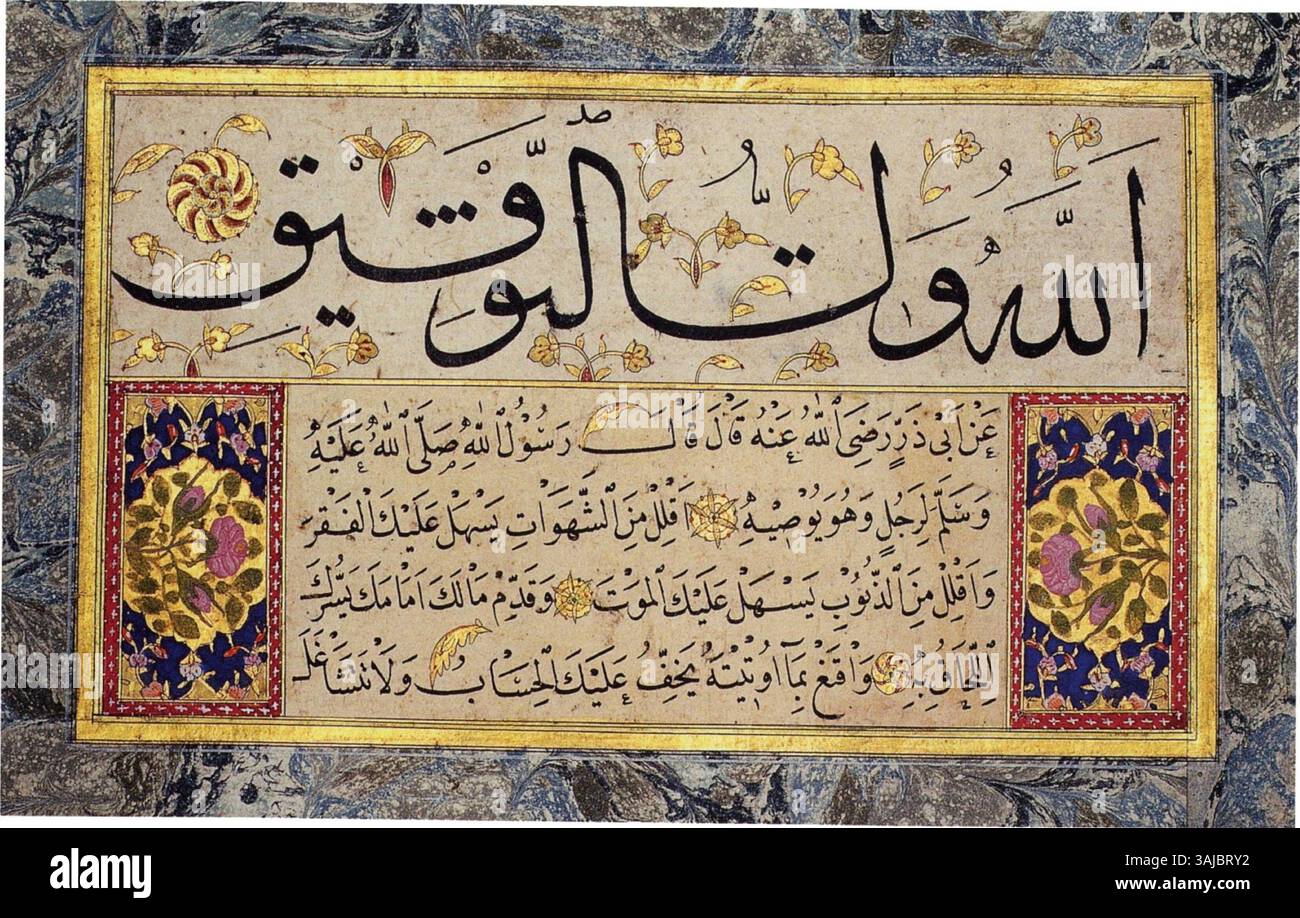 اللَّهُ وَلِيُّ التَّوْفِيقِ
عَنْ أَبِي ذَرٍّ رَضِيَ اللَّهُ عَنْهُ قَالَ قَالَ رَسُولُ اللَّهِ صَلَّى اللَّهُ عَلَيْهِ
وَسَلَّمَ لِرَجُلٍ وَهُوَ يُوصِيهِ اَقْلِلْ مِنَ الشَّهَوَاتِ يَسْهُلْ عَلَيْكَ الْفَقْرُ
وَاَقْلِلْ مِنَ الذُّنُوبِ يَسْهُلْ عَلَيْكَ الْمَوْتُ وَقَدِّمْ مَالَكَ اَمَامَكَ يَسُرُّكَ
اللِّحَاقُ بِهِ وَاقْنَعْ بِمَا اُوتِيتَهُ يَخِفُّ عَلَيْكَ الْحِسَابُ وَلَا تَتَشَاغَلْ
alamy
Image ID: 3AJBRY2
www.alamy.com